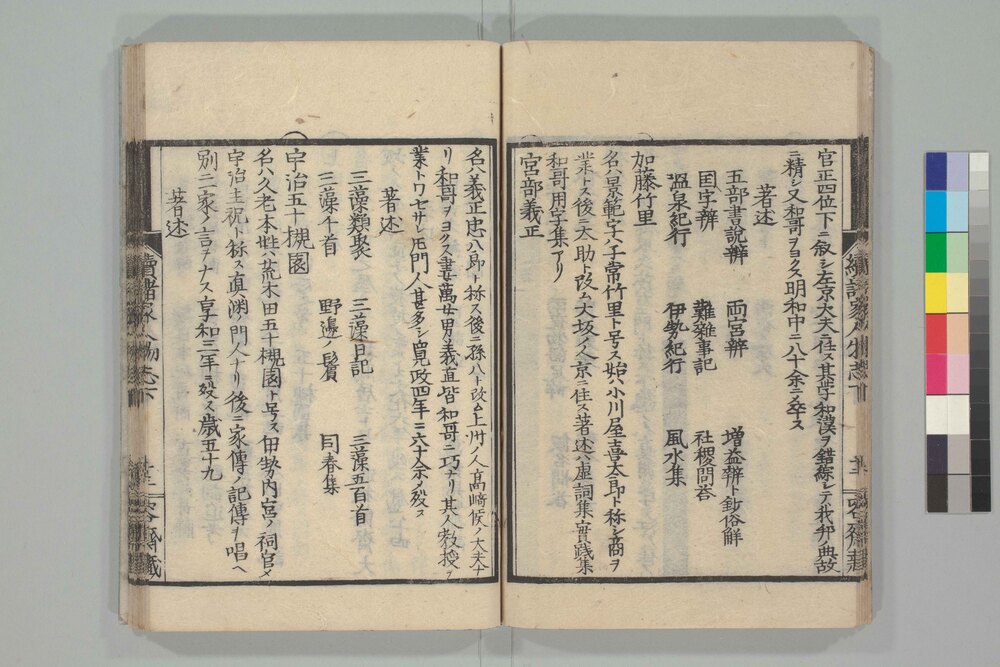 官正四位下ニ叙シ左京大夫ニ任ス其学和漢ヲ錯綜シテ我邦ノ典故
ニ精シ又和哥ヲヨクス明和中ニ八十余ニ乄卒ス
著述
五部書説辨 両宮辨 増益辨ト鈔俗解
国字辨 難雑事記 社稷問答
温泉紀行 伊勢紀行 風水集
加藤竹里
名ハ景範字ハ子常竹里ト号ス始ハ小川屋喜太郎ト称シ商ヲ
業トス後ニ太助ト改ム大坂ノ人京ニ住ス著述ハ虚詞集實践集
和哥用字集アリ
宮部義正
名ハ義正忠八郎ト称ス後ニ孫八ト改ム上州ノ人髙﨑侯ノ大夫ナ
リ和哥ヲヨクス妻萬女男義直皆和哥ニ巧ナリ其人教授ヲ
業トワセサレ𪜈門人甚多シ寛政四年ニ六十余ノ殁ス
著述
三藻類聚 三藻日記 三藻五百首
三藻千首 野邊ノ鬢 同春集
宇治五十槻園
名ハ久老本姓ハ荒木田五十槻園ト号ス伊勢内宮ノ祠官乄
宇治主祝ト称ス真渕ノ門人ナリ後ニ家傳ノ記傳ヲ唱ヘ
別ニ一家ノ言ヲナス享和三年ニ殁ス歳五十九
著述
續諸家人物志下